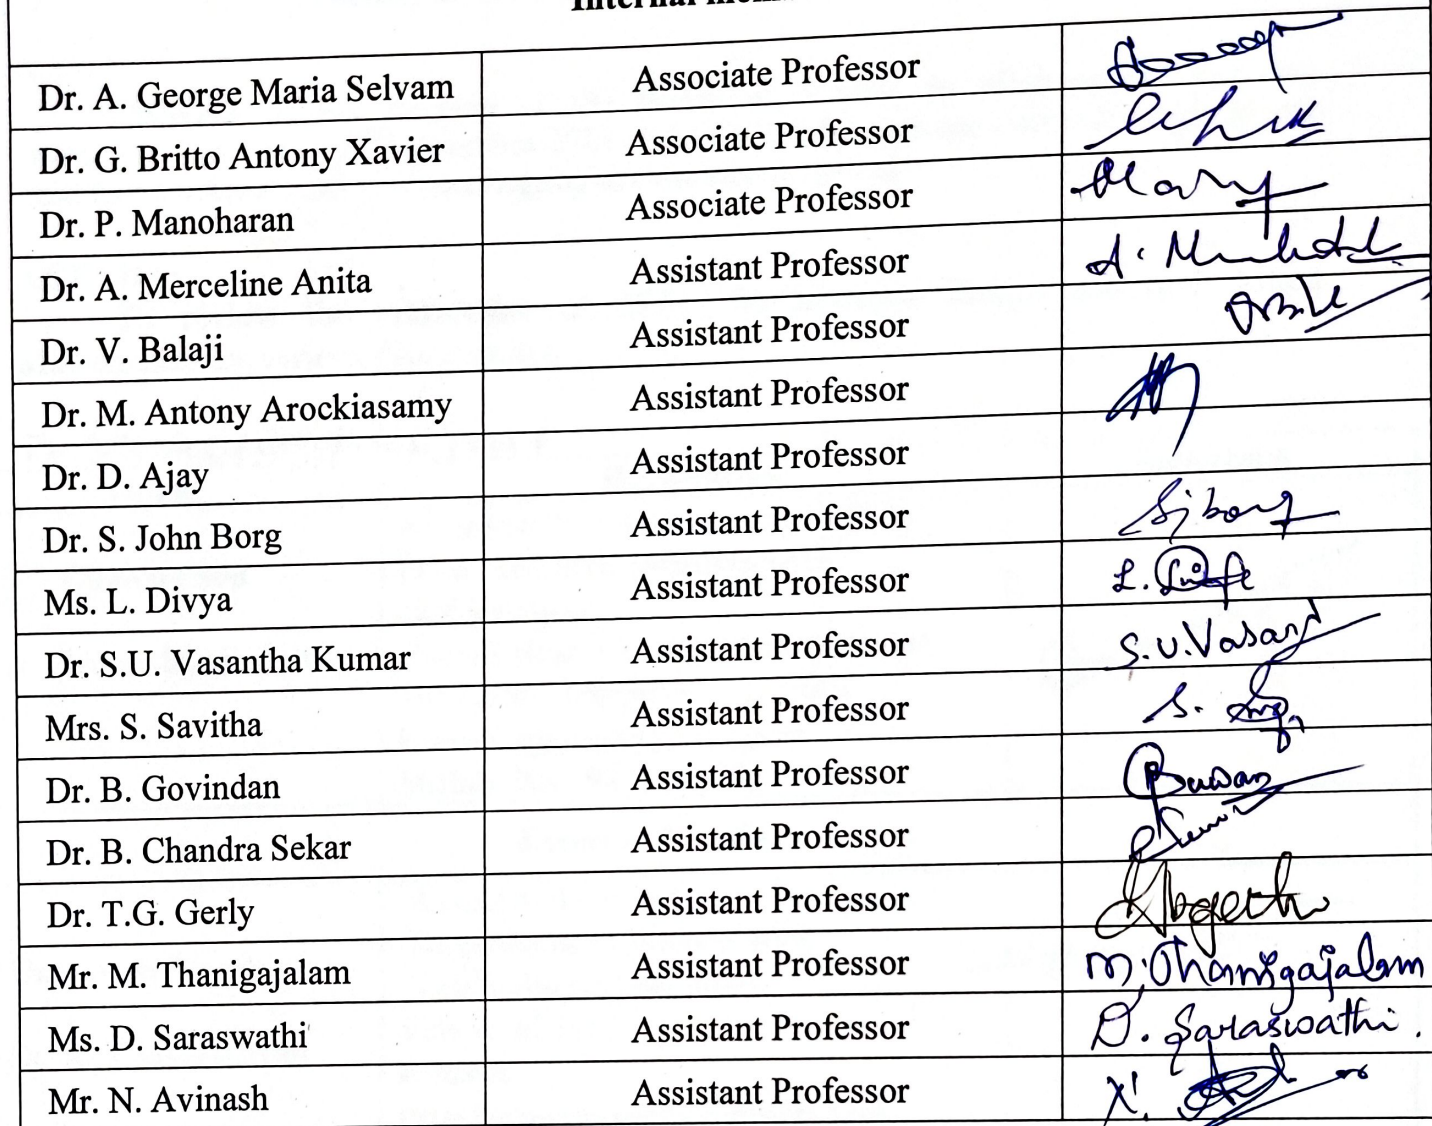 Internal
Dr. A. George Maria Selvam Associate Professor
Dr. G. Britto Antony Xavier Associate Professor
Dr. P. Manoharan Associate Professor
Dr. A. Merceline Anita Assistant Professor
Dr. V. Balaji Assistant Professor
Dr. M. Antony Arockiasamy Assistant Professor
Dr. D. Ajay Assistant Professor
Dr. S. John Borg Assistant Professor
Ms. L. Divya Assistant Professor
Dr. S.U. Vasantha Kumar Assistant Professor S.U.Vasant
Mrs. S. Savitha Assistant Professor
Dr. B. Govindan Assistant Professor
Dr. B. Chandra Sekar Assistant Professor
Dr. T.G. Gerly Assistant Professor
Mr. M. Thanigajalam Assistant Professor M. Thanigajalam
Ms. D. Saraswathi Assistant Professor D. Saraswathi.
Mr. N. Avinash Assistant Professor